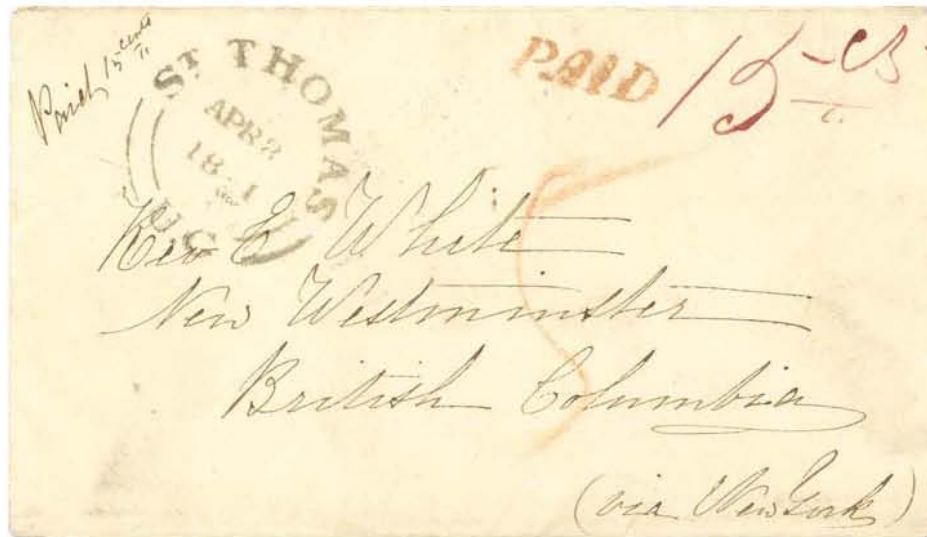 Paid 15 cents
ST THOMAS
APR 2
U.C
PAID
15 cts
5
Rev E White
New Westminster
British Columbia
(via New York)